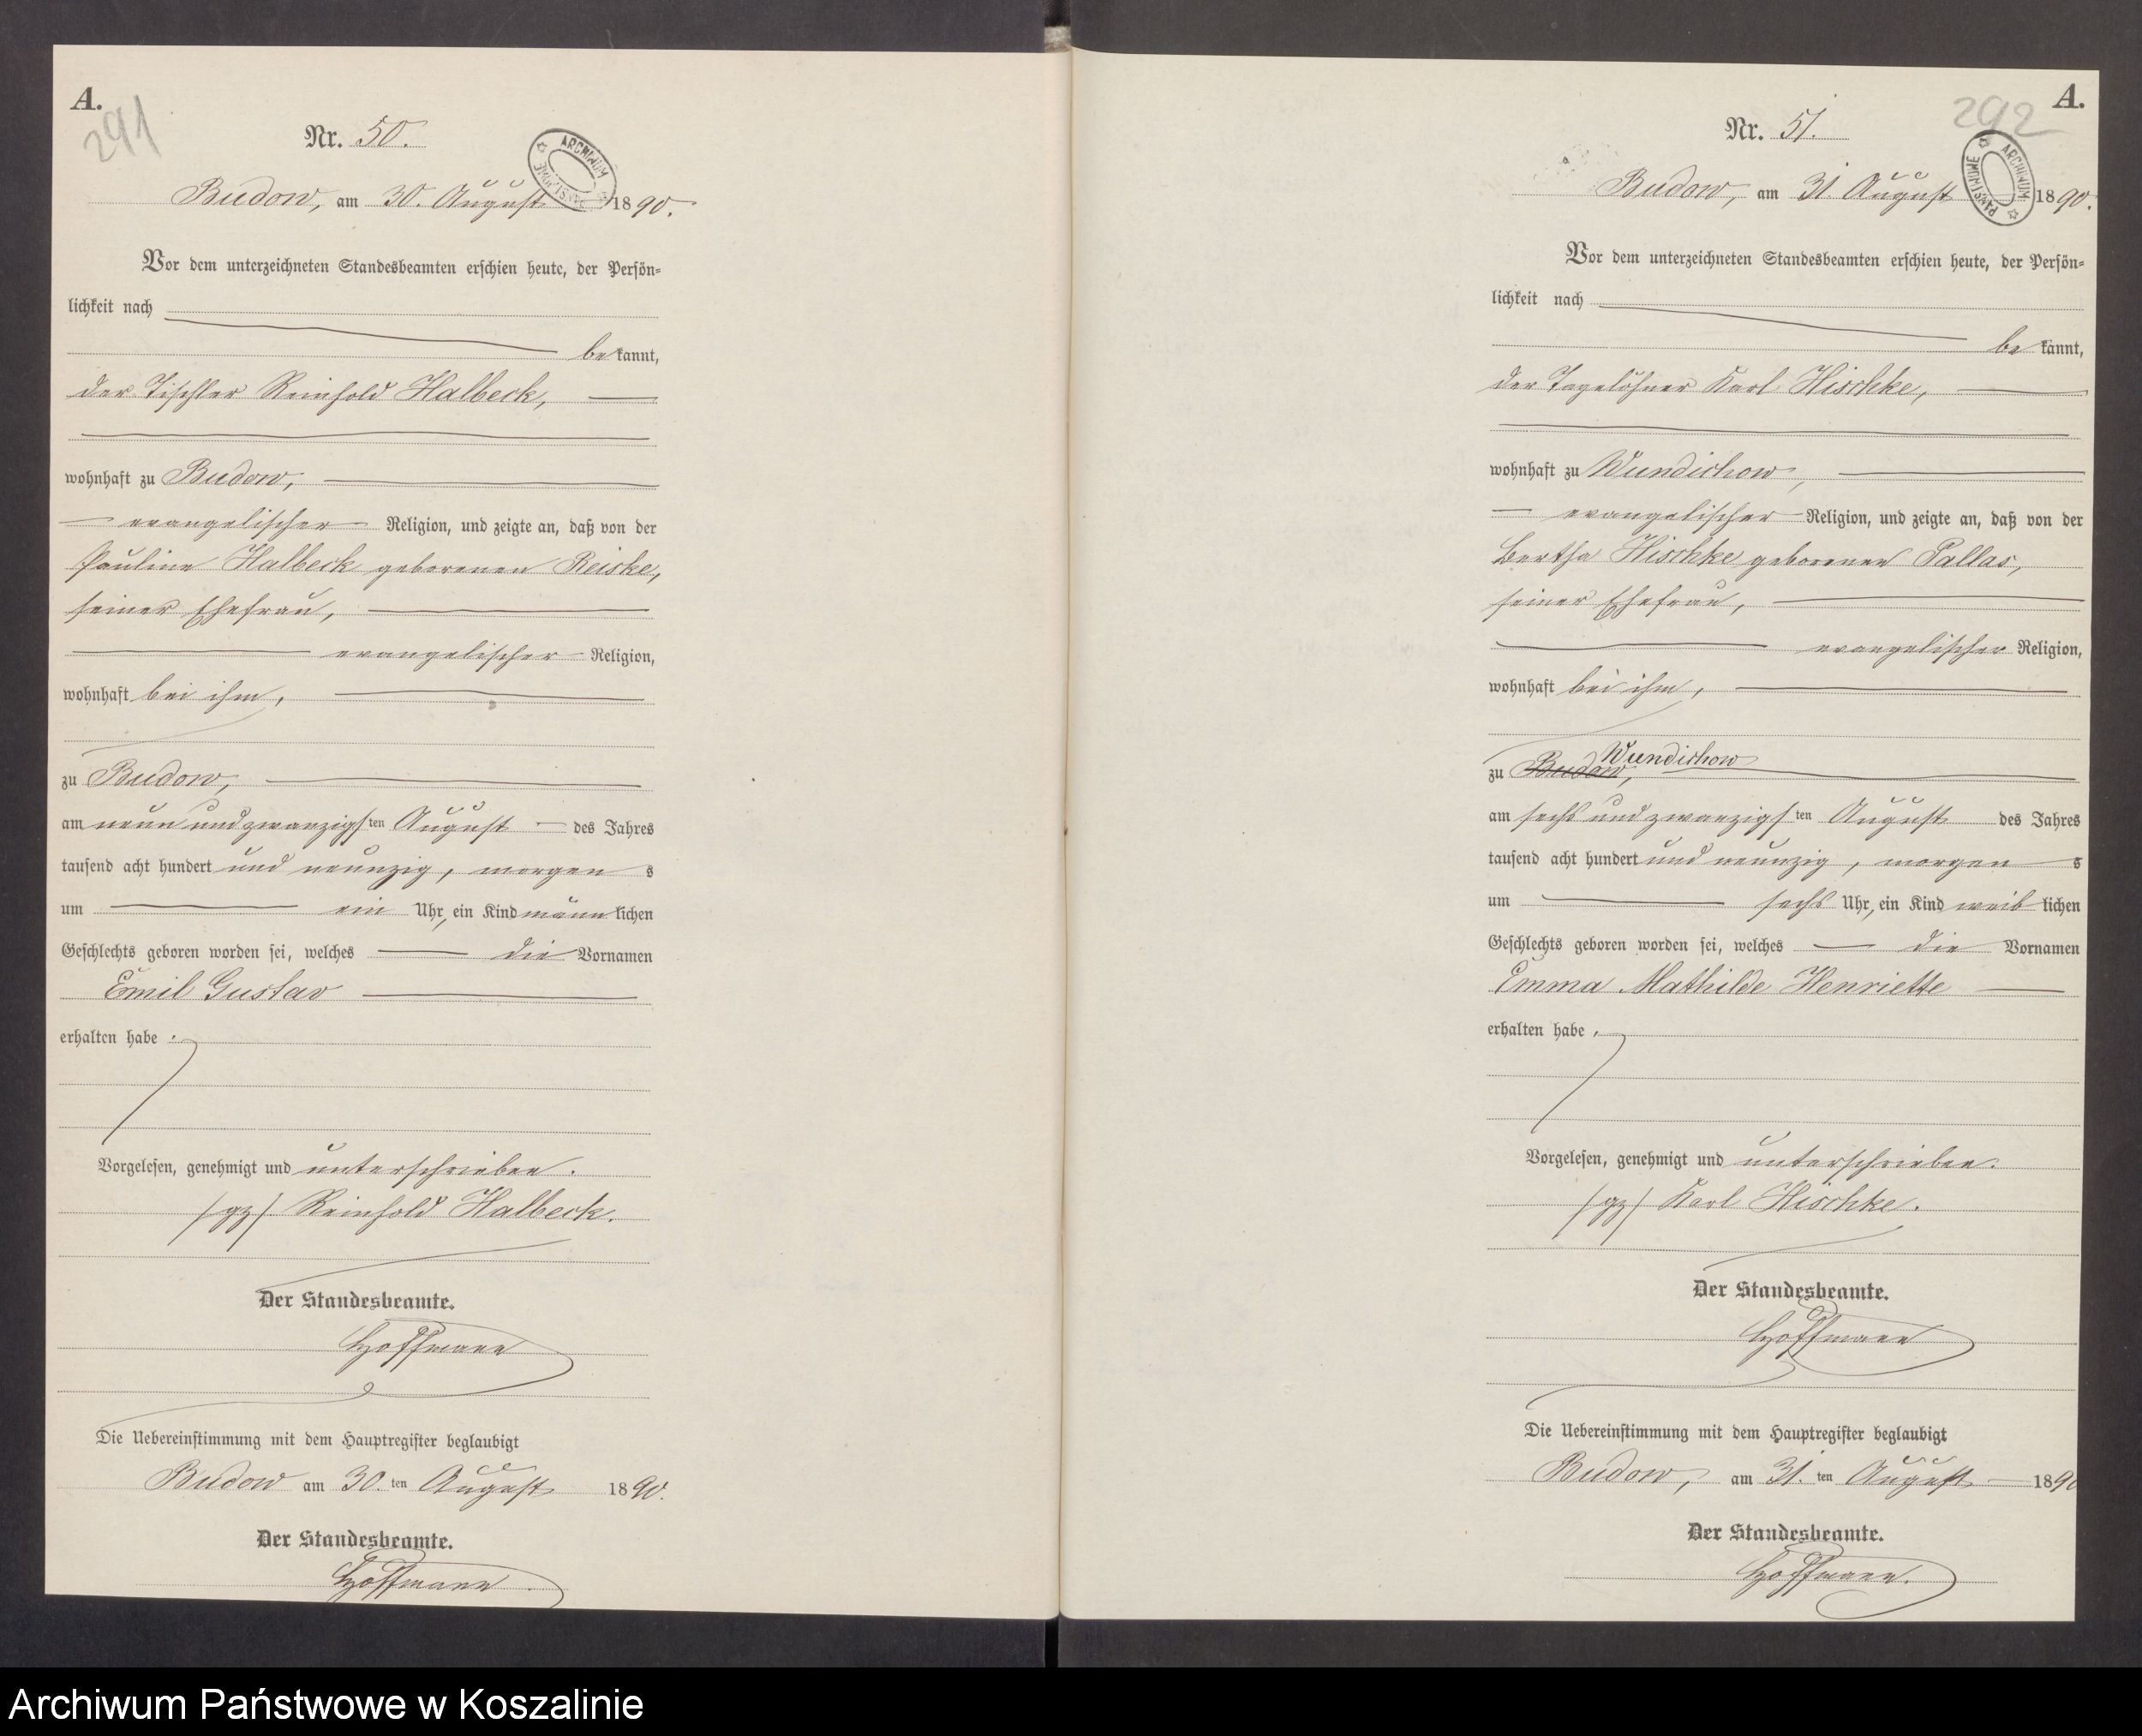 A.
291
Nr. 50.
ARCHIWUM PAŃSTWOWE
Budow, am 30. August 1890.
Vor dem unterzeichneten Standesbeamten erschien heute, der Persön=
lichkeit nach
be kannt,
der Tischler Reinhold Halbeck,
wohnhaft zu Budow,
evangelischer Religion, und zeigte an, daß von der
Pauline Halbeck geborenen Reiske,
seiner Ehefrau,
evangelischer Religion,
wohnhaft bei ihm,
zu Budow,
am neun und zwanzigsten August des Jahres
tausend acht hundert und neunzig, morgens
um ein Uhr, ein Kind männlichen
Geschlechts geboren worden sei, welches die Vornamen
Emil Gustav
erhalten habe.
Vorgelesen, genehmigt und unterschrieben.
/gz/ Reinhold Halbeck.
Der Standesbeamte.
Hoffmann
Die Uebereinstimmung mit dem Hauptregister beglaubigt
Budow am 30. ten August 1890.
Der Standesbeamte.
Hoffmann
A.
292
Nr. 51.
ARCHIWUM PAŃSTWOWE
Budow, am 31. August 1890.
Vor dem unterzeichneten Standesbeamten erschien heute, der Persön=
lichkeit nach
be kannt,
der Tagelöhner Karl Hischke,
wohnhaft zu Wundichow,
evangelischer Religion, und zeigte an, daß von der
Bertha Hischke geborenen Pallas,
seiner Ehefrau,
evangelischer Religion,
wohnhaft bei ihm,
Wundichow
zu Budow,
am sechs und zwanzigsten August des Jahres
tausend acht hundert und neunzig, morgens
um sechs Uhr, ein Kind weiblichen
Geschlechts geboren worden sei, welches die Vornamen
Emma Mathilde Henriette
erhalten habe.
Vorgelesen, genehmigt und unterschrieben.
/gz/ Karl Hischke.
Der Standesbeamte.
Hoffmann
Die Uebereinstimmung mit dem Hauptregister beglaubigt
Budow, am 31. ten August 1890
Der Standesbeamte.
Hoffmann.
Archiwum Państwowe w Koszalinie